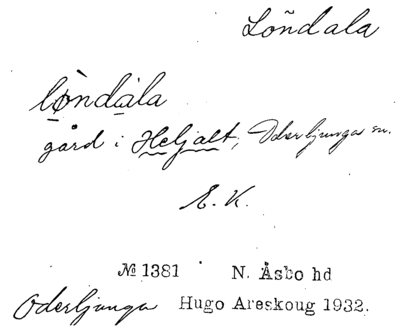 Londala
lòndàla
gård i Heljalt, Oderljunga sn.
E. K.
№ 1381 N. Åsbo hd
Oderljunga Hugo Areskoug 1932.